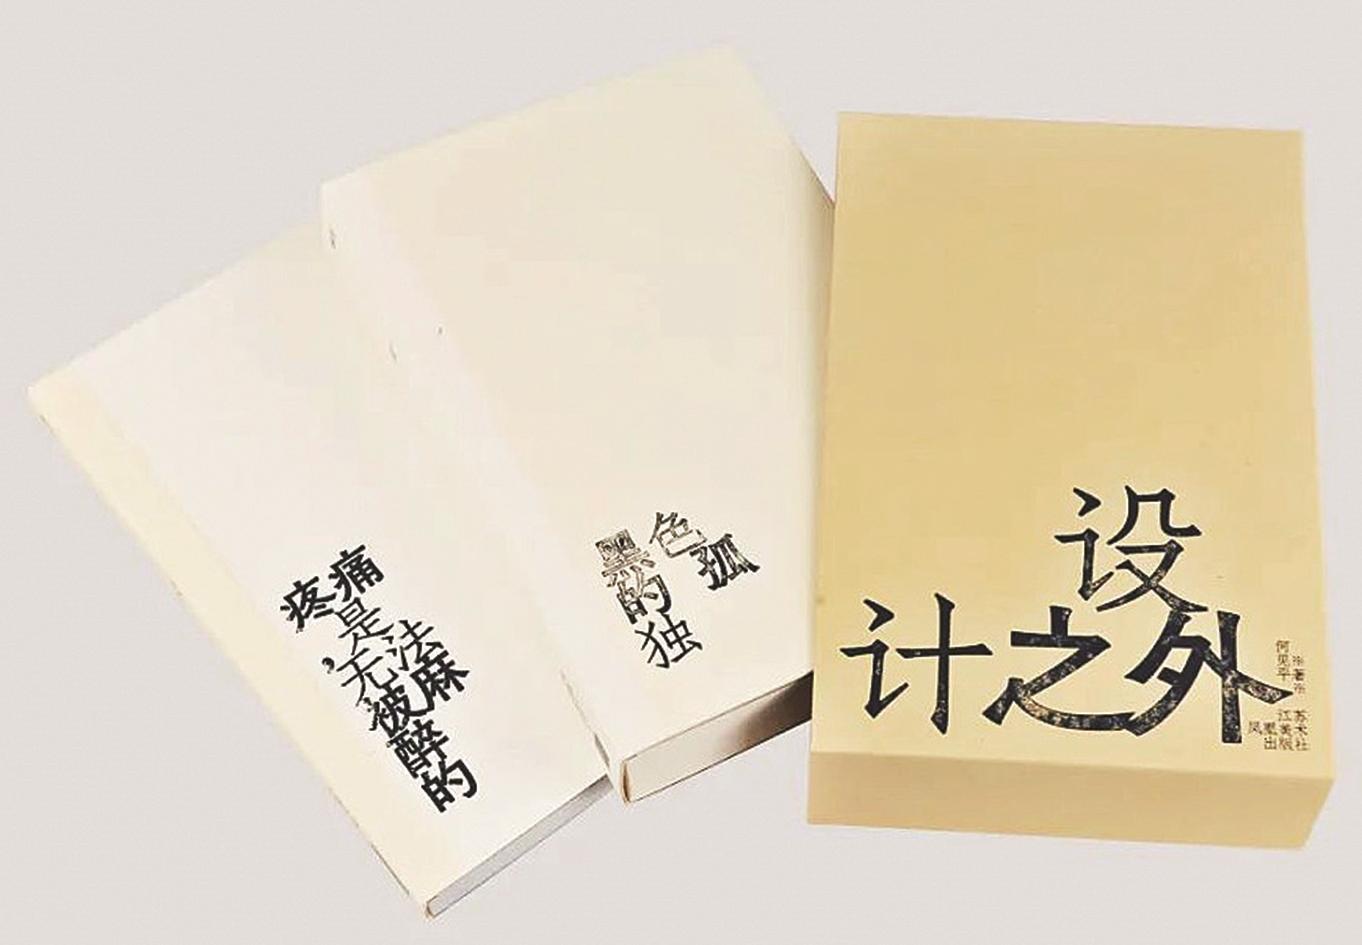 疼痛
是
,无法
被麻
醉
的
黑色
的孤
独
设
计之外
何见平
※著※
江苏
凤凰美术
出版社